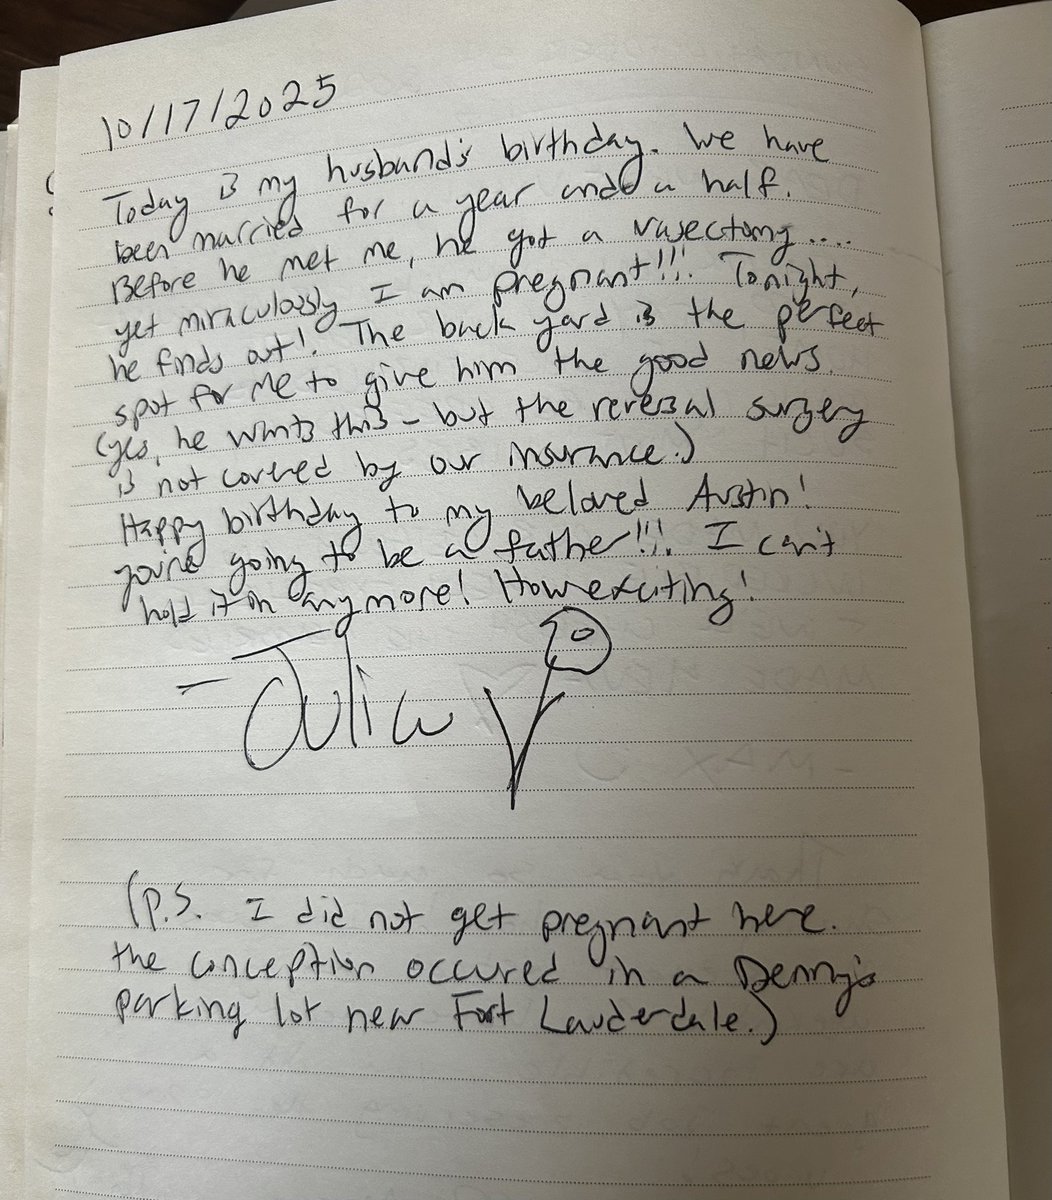 10/17/2025
Today is my husband's birthday. We have
been married for a year and a half.
Before he met me, he got a vasectomy....
yet miraculously I am pregnant!!! Tonight,
he finds out! The back yard is the perfect
spot for me to give him the good news.
(yes, he wants this - but the reversal surgery
is not covered by our insurance.)
Happy birthday to my beloved Austin!
you're going to be a father!!! I can't
hold it in anymore! How exciting!
- Julia
(P.S. I did not get pregnant here.
the conception occured in a Denny's
parking lot near Fort Lauderdale.)